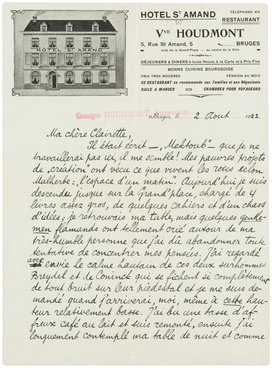 HOTEL ST AMAND
HOTEL ST AMAND
TÉLÉPHONE
RESTAURANT
Vve HOUDMONT
5, Rue St Amand, 5
BRUGES
près de la Grand'Place
au centre de la Ville
DÉJEUNERS & DINERS à toute heure, à la Carte et à Prix Fixe
BONNE CUISINE BOURGEOISE
PRIX TRÈS MODÉRÉS
PENSION AU MOIS
LE RESTAURANT se recommande aux Familles et aux Négociants
SALLE A MANGER
CHAMBRES POUR VOYAGEURS
Bruges le 2 Août 1922
Ma chère Clairette,
Il était écrit — „Mektoub" — que je ne
travaillerai pas ici, il me semble! Mes pauvres projets
de „création" ont vécu ce que vivent les roses selon
Malherbe: „l'espace d'un matin". Aujourd'hui je suis
descendu jusque sur la Grand'place, chargé de 4
livres assez gros, de quelques cahiers et d'un chaos
d'idées; je retrouvais ma table, mais quelques gentle-
men flamands ont tellement crié autour de ma
très-humble personne que j'ai dû abandonner toute
tentative de concentrer mes pensées. J'ai regardé
avec envie le calme haineux de ces deux surhommes
Breydel et de Coninck qui se fichent si complètement
de tout bruit sur leur piédestal et je me suis de-
mandé quand j'arriverai, moi, même à cette hau-
teur relativement basse. J'ai bu une tasse d'af-
freux café au lait et suis remonté, ensuite j'ai
longuement contemplé ma table de nuit et comme